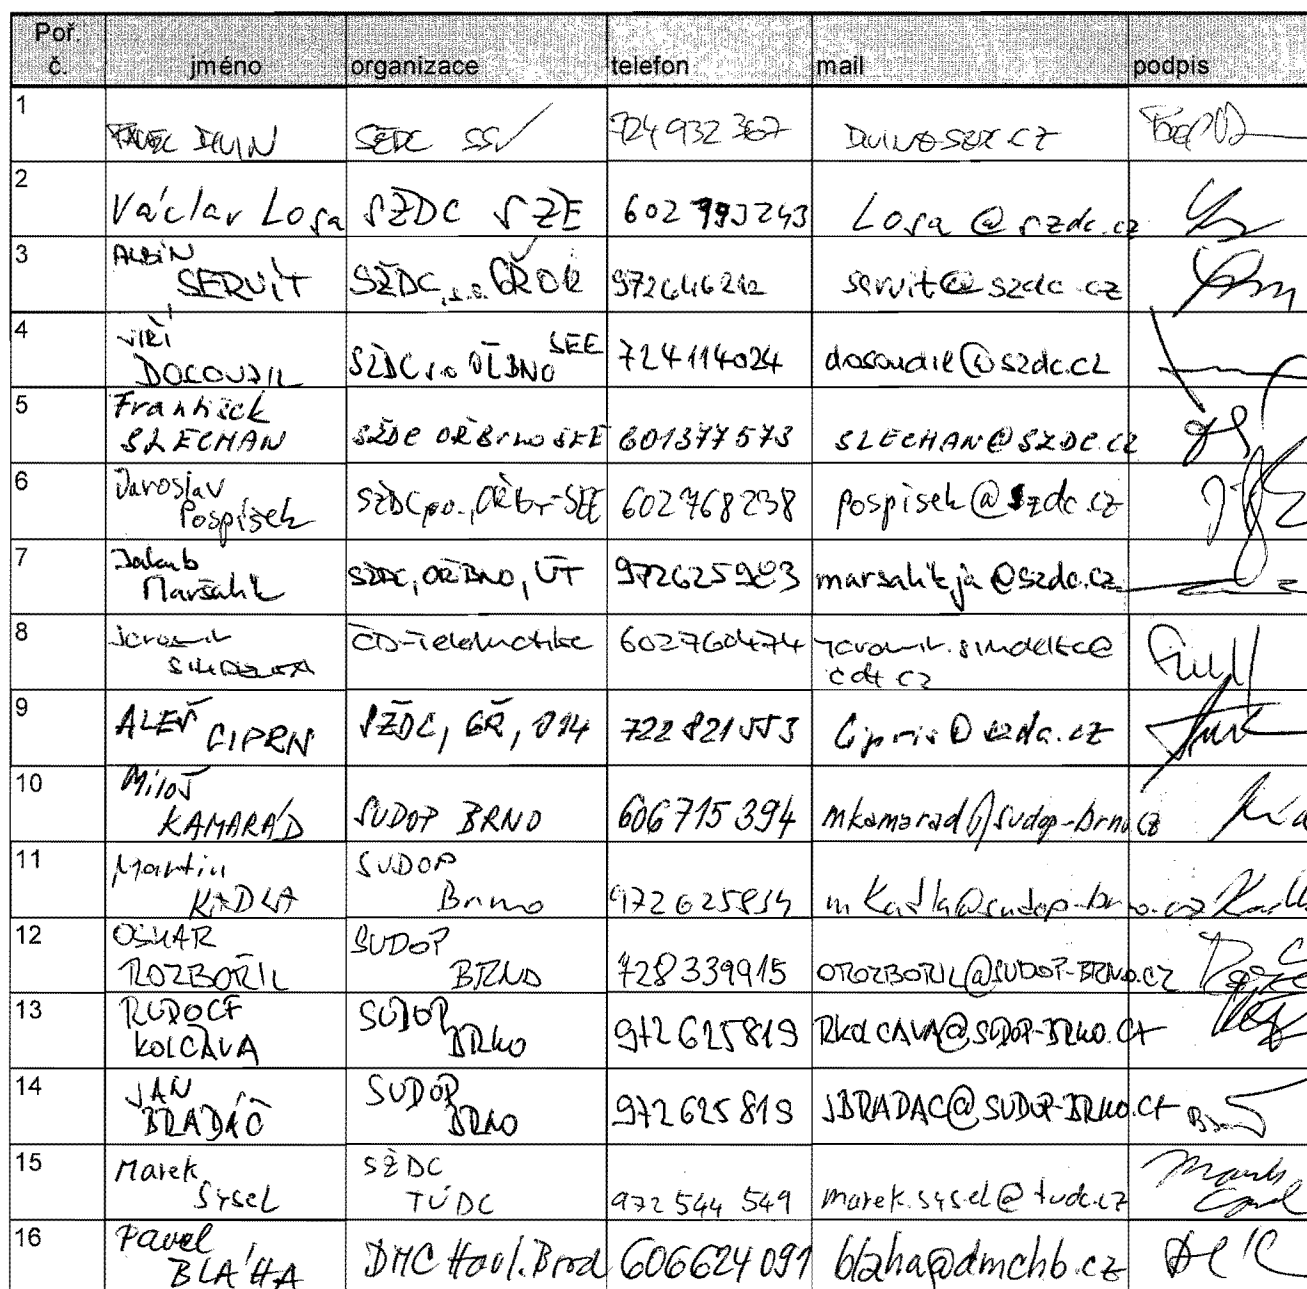 Poř. č. jméno organizace telefon mail podpis
1 PAVEL DIVIN SŽDC SSV 724 932 367
2 Václav Losa SŽDC SŽE 602 793243 Losa @ szdc.cz
3 ALBÍN SERVÍT SŽDC, s.o. servit@szdc.cz
4 JIŘÍ DOSOUDIL SŽDC s.o. OŘ BNO SEE 724114024 dosoudil@szdc.cz
5 František SLECHAN SŽDC OŘ Brno SEE 601377573 SLECHAN@SZDC.CZ
6 Jaroslav Pospíšek SŽDC p.o., OŘ Br-SEE 602768238 pospisek@szdc.cz
7 Jakub Maršálik SŽDC, OŘ BNO, ÚT 972625983 marsalikja@szdc.cz
8 Jaromír ČD-Telematika 602760474
9 ALEŠ SŽDC, GŘ, O14 722 821 553
10 Miloš KAMARÁD SUDOP BRNO 606 715 394 mkamarad@sudop-brno.cz
11 Martin KADLA SUDOP Brno 972625834 mkadla@sudop-brno.cz
12 OSKAR ROZBOŘIL SUDOP BRNO 728 339915 OROZBORIL@SUDOP-BRNO.CZ
13 RUDOLF KOLČAVA SUDOP BRNO 972625819 RKOLCAVA@SUDOP-BRNO.CZ
14 JAN BRADÁČ SUDOP BRNO 972625819 JBRADAC@SUDOP-BRNO.CZ
15 Marek Sysel SŽDC TÚDC 972 544 549 marek.sysel@tudc.cz
16 Pavel BLÁHA DMC Havl. Brod 606624091 blaha@dmchb.cz